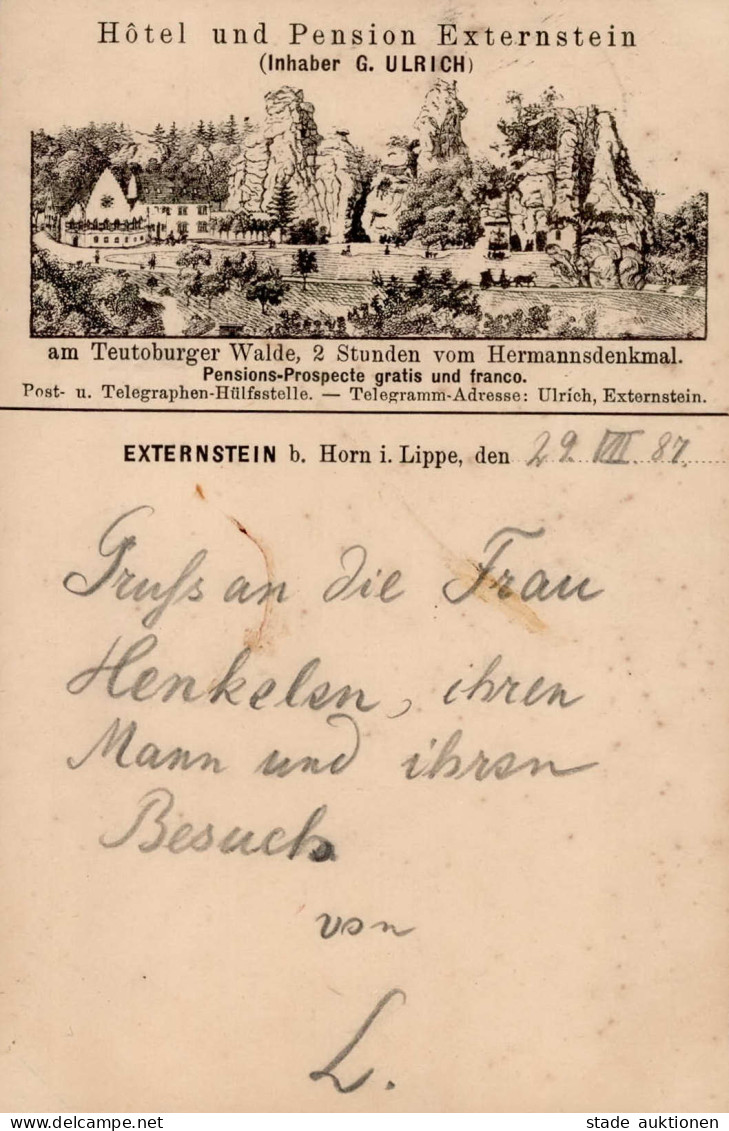 Hôtel und Pension Externstein
(Inhaber G. ULRICH)
am Teutoburger Walde, 2 Stunden vom Hermannsdenkmal.
Pensions-Prospecte gratis und franco.
Post- u. Telegraphen-Hülfsstelle. — Telegramm-Adresse: Ulrich, Externstein.
EXTERNSTEIN b. Horn i. Lippe, den 29. VIII. 87.
Gruß an die Frau
Henkelen, ihren
Mann und ihren
Besuch
von
L.
stade auktionen